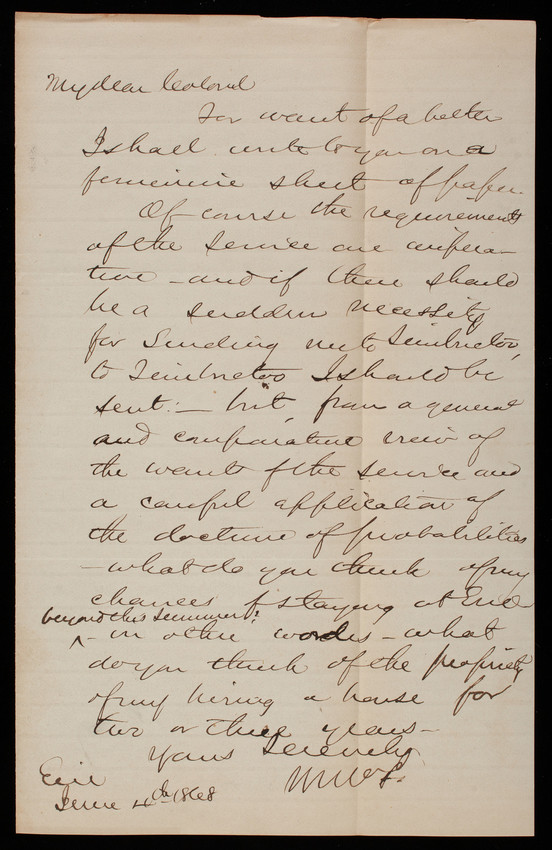 My dear Colonel
For want of a better
I shall write to you on a
feminine sheet of paper.
Of course the requirements
of the service are impera-
tive - and if there should
be a sudden necessity
for sending me to Timbuctoo,
to Timbuctoo I should be
sent: - but, from a general
and comparative view of
the wants of the service and
a careful application of
the doctrine of probabilities
- what do you think of my
chances of staying at Erie
beyond this summer?
- in other words - what
do you think of the propriety
of my hiring a house for
two or three years -
Yours Serenely
Erie
June 4th 1868